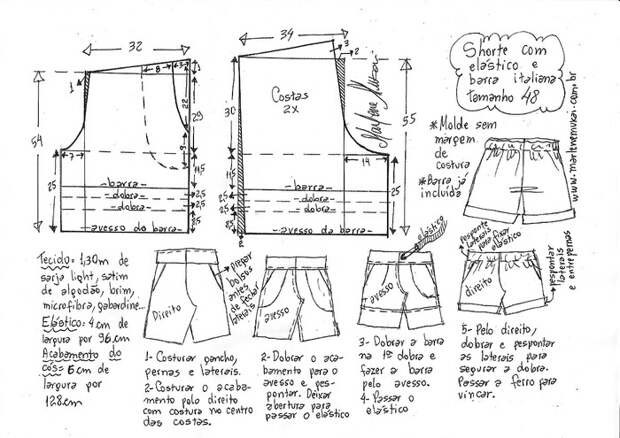 Shorte com
elástico e
barra italiana
tamanho 48
www.marlenemukai.com.br
*Molde sem
margem
de
costura
*Barra já
incluída
32
8
3
1
1
22
29
9
54
7
11,5
25
-barra-
-dobra-
-dobra-
-avesso da barra-
2,5
2,5
25
34
3
2
Costas
2X
Marlene Mukai
30
55
14
11,5
25
-barra-
-dobra-
-dobra-
-avesso da barra-
2,5
2,5
25
2
Tecido: 1,30m de
sarja light, satim
de algodão, brim,
microfibra, gabardine...
Elástico: 4cm de
largura por 96cm
Acabamento do
cós= 6cm de
largura por
128cm
Direito
Pregar
bolsos
antes
de fechar
laterais
1- Costurar gancho,
pernas e laterais.
2- Costurar o acaba-
mento pelo direito
com costura no centro
das costas.
avesso
2- Dobrar o aca-
bamento para o
avesso e pes-
pontar. Deixar
abertura para
passar o elástico
elástico
avesso
3- Dobrar a barra
na 1ª dobra e
fazer a barra
pelo avesso.
4- Passar o
elástico
*Pesponte
laterais
para fixar
elástico
direito
*pespontar
laterais
e entrepernas
5- Pelo direito,
dobrar e pespontar
as laterais para
segurar a dobra.
Passar a ferro para
vincar.